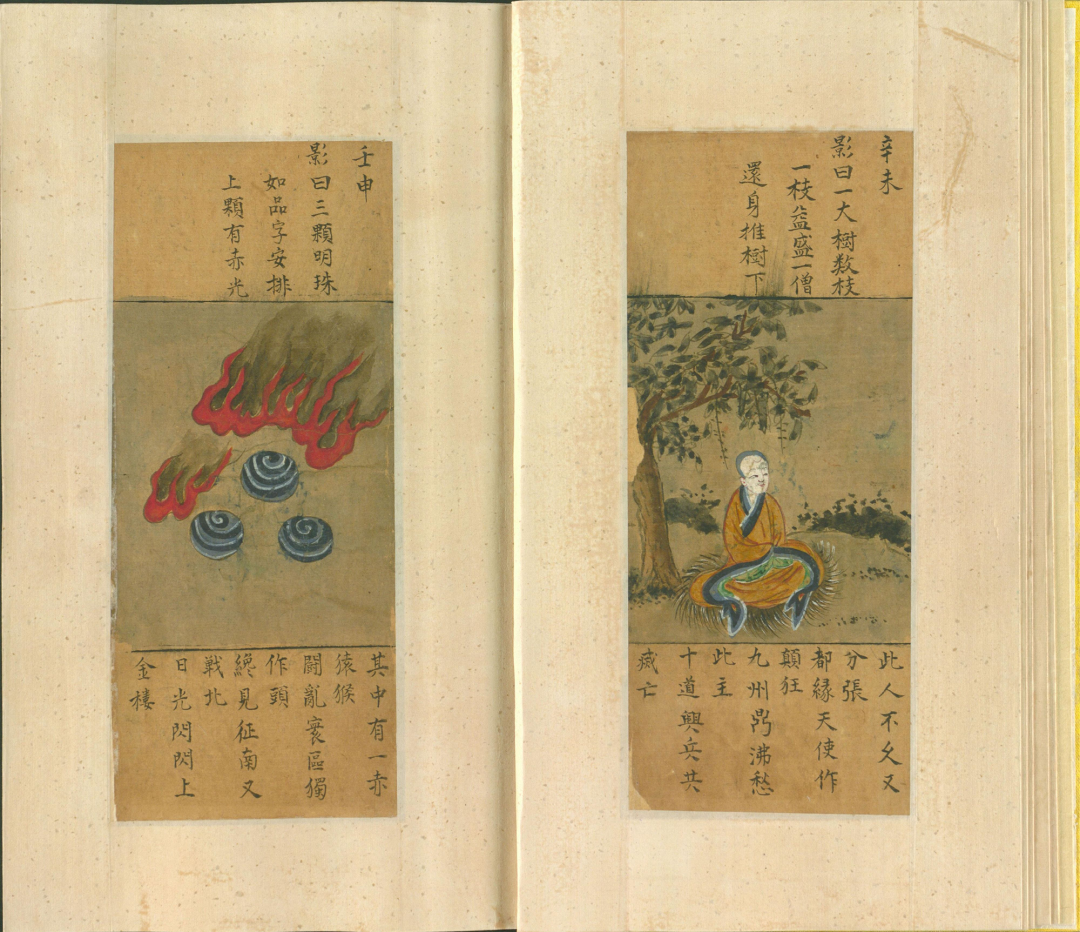 辛未
影曰一大樹数枝
一枝益盛一僧
還身推樹下
此人不久又
分張
都縁天使作
顛狂
九州鼎沸愁
此主
十道興兵共
滅亡
壬申
影曰三顆明珠
如品字安排
上顆有赤光
其中有一赤
猿猴
鬪亂寰區獨
作頭
纔見征南又
戦北
日光閃閃上
金樓